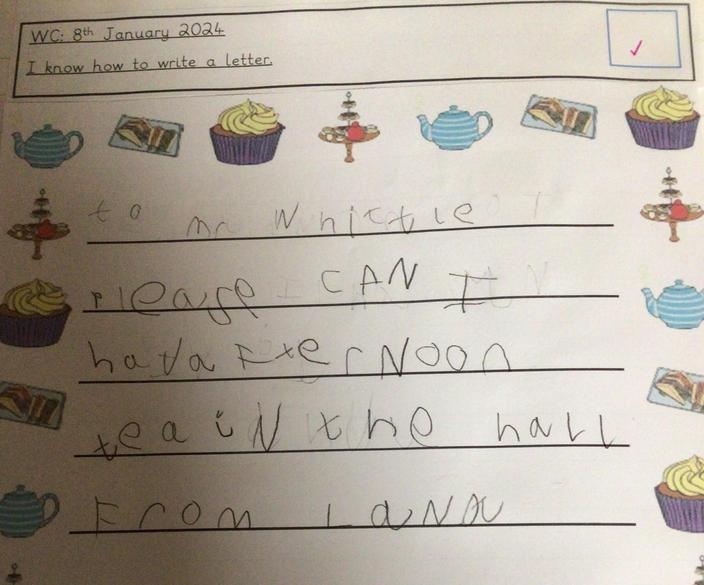 WC: 8th January 2024
I know how to write a letter.
to mr Whittle
please CAN I
hava FterNooN
tea iN the hall
From LaNa